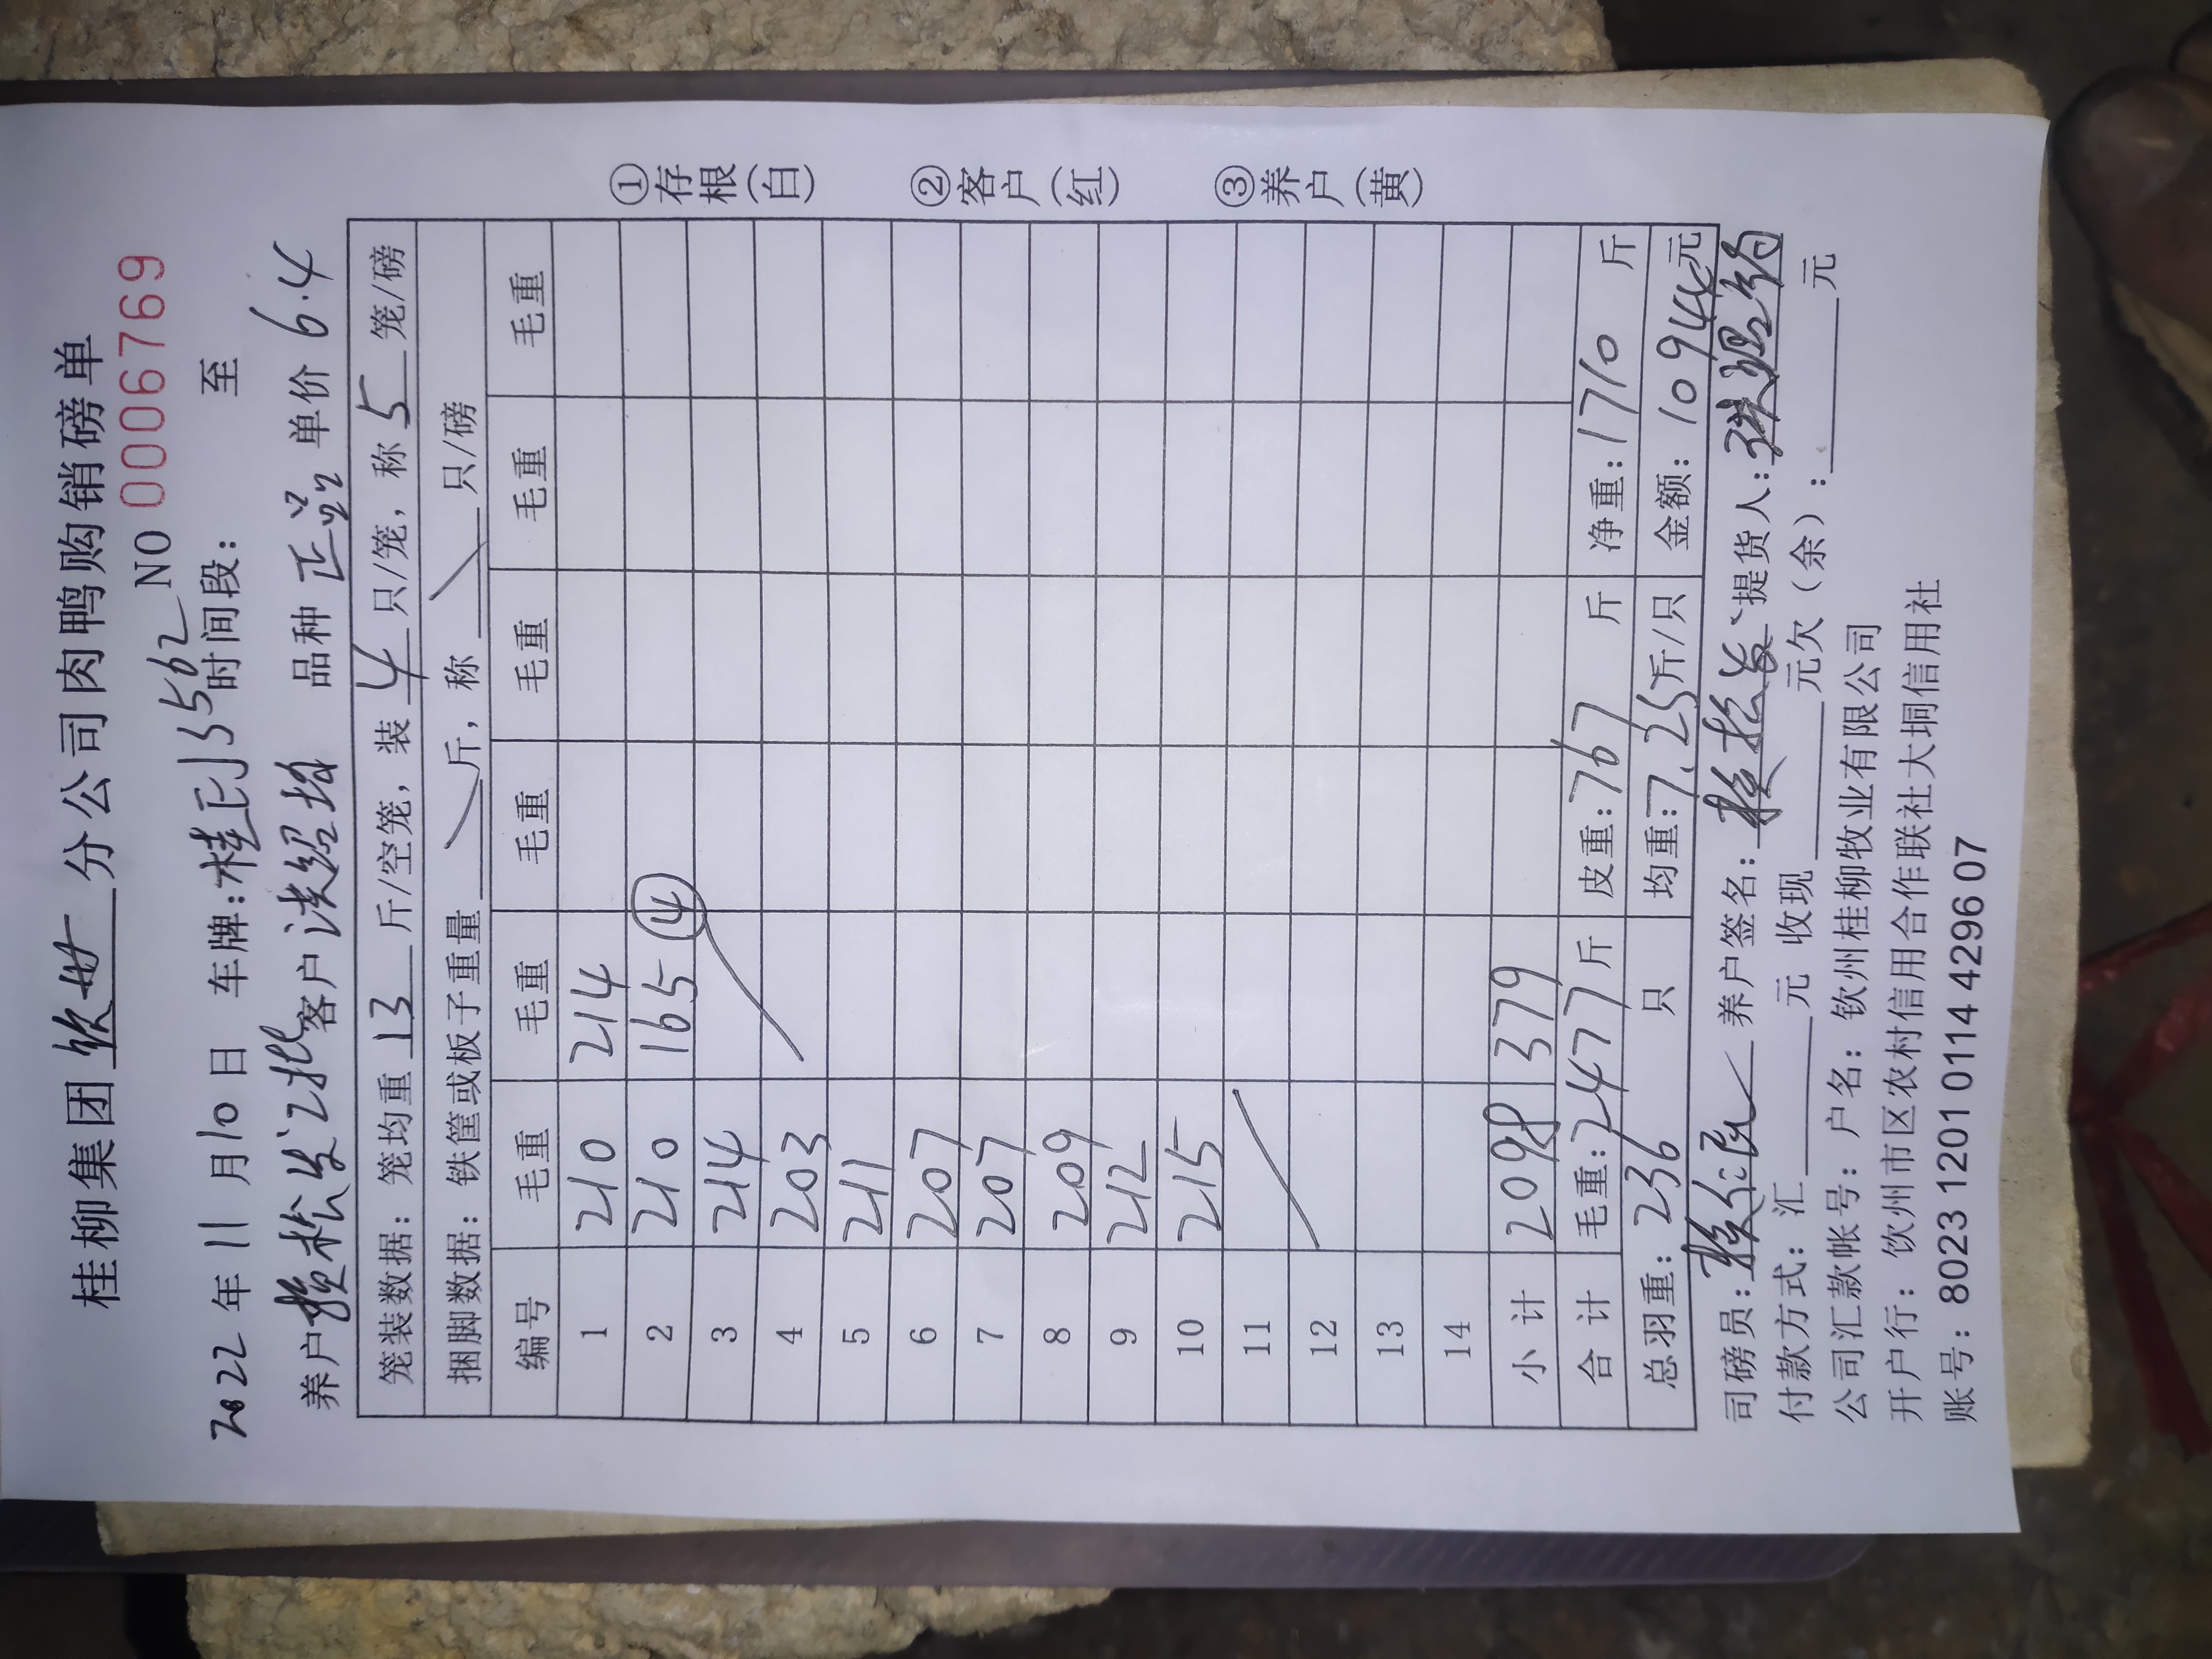 桂柳集团 钦州 分公司肉鸭购销磅单
2022 年 11 月 10 日 车牌: 桂 3562 NO 0006769
时间段: 至
养户 松发2批 客户 绍 品种 正品 单价 6.4
笼装数据: 笼均重 13 斤/空笼, 装 4 只/笼, 称 5 笼/磅
捆脚数据: 铁筐或板子重量 斤, 称 只/磅
编号 毛重 毛重 毛重 毛重 毛重 毛重
1 210 214
2 210 165 ④
3 214
4 203
5 211
6 207
7 207
8 209
9 212
10 215
11
12
13
14
小 计 2098 379
合 计 毛重: 2477 斤 皮重: 767 斤 净重: 1710 斤
总羽重: 236 只 均重: 7.25 斤/只 金额: 10944 元
司磅员: 养户签名: 松发 提货人:
付款方式: 汇 元 收现 元欠 (余): 元
公司汇款帐号: 户名: 钦州桂柳牧业有限公司
开户行: 钦州市区农村信用合作联社大垌信用社
账号: 8023 1201 0114 4296 07
①存根(白)
②客户(红)
③养户(黄)